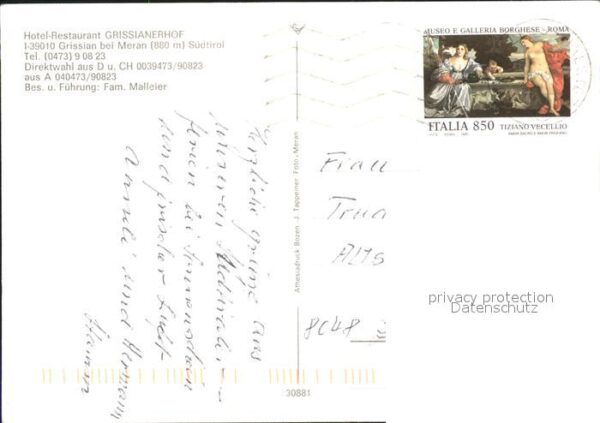 Hotel-Restaurant GRISSIANERHOF
I-39010 Grissian bei Meran (880 m) Südtirol
Tel. (0473) 9 08 23
Direktwahl aus D u. CH 0039473/90823
aus A 040473/90823
Bes. u. Führung: Fam. Malleier
MUSEO E GALLERIA BORGHESE - ROMA
ITALIA 850 TIZIANO VECELLIO
Herzliche Grüße aus
unseren
ferien bei Sonnenschein
und frischer Luft
und Hermann
Athesiadruck Bozen - J. Tappeiner Foto, Meran
Frau
8048
privacy protection
Datenschutz
30881